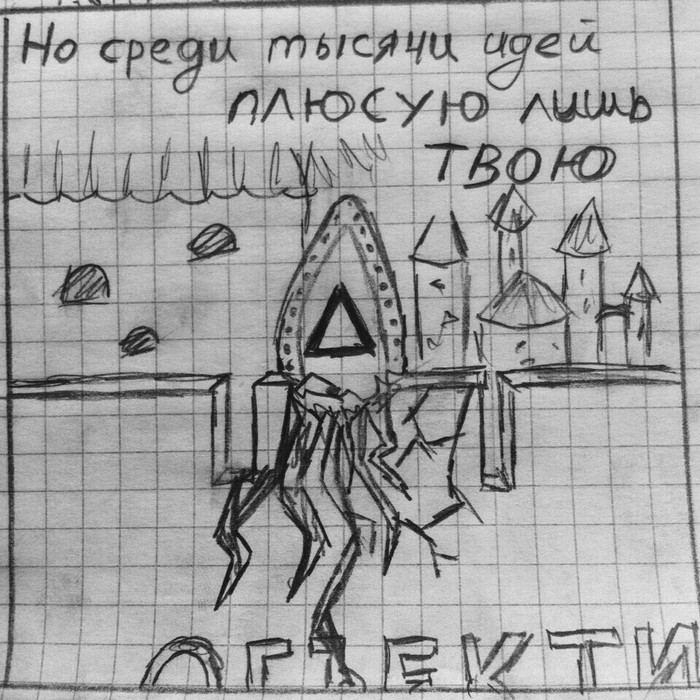 Но среди тысячи идей
плюсую лишь
ТВОЮ